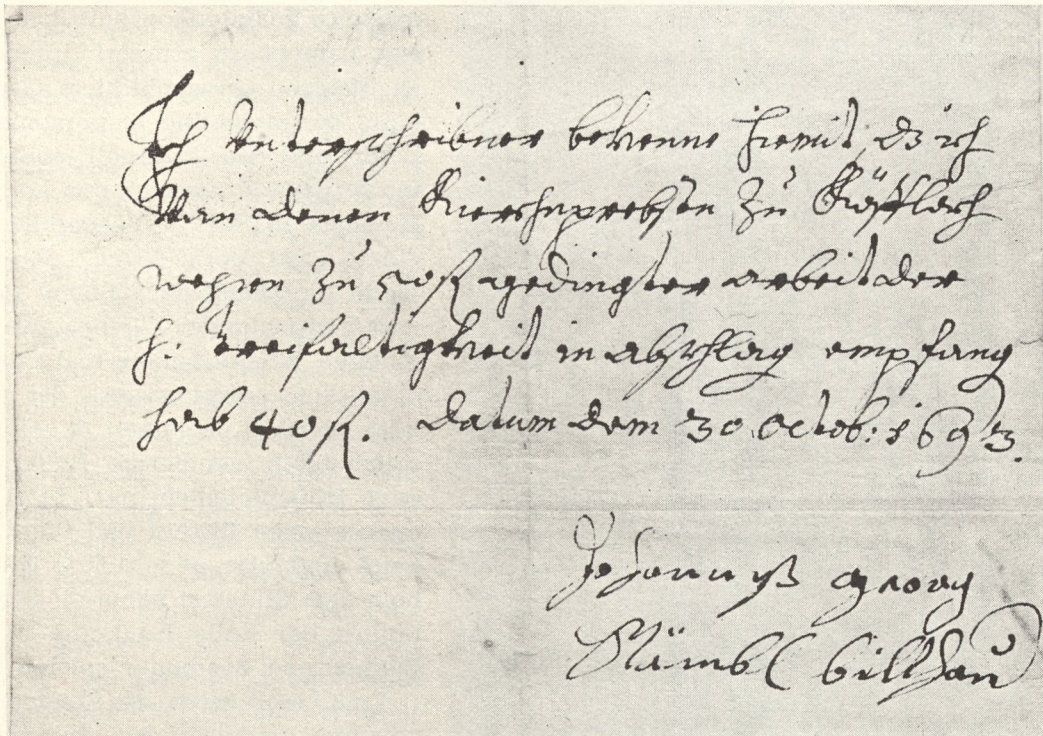 Ich Unterschribner bekenne hiemit, dz ich
Van denen Kierchnprebsten Zu Köfflach
wegen Zu 50 fl gedingter arbeit der
h: dreifaltigkeit in abschlag empfang
hab 40 fl. datum dem 30 Octob: 1693.
Johanniß Georg
Stämbl bilthau